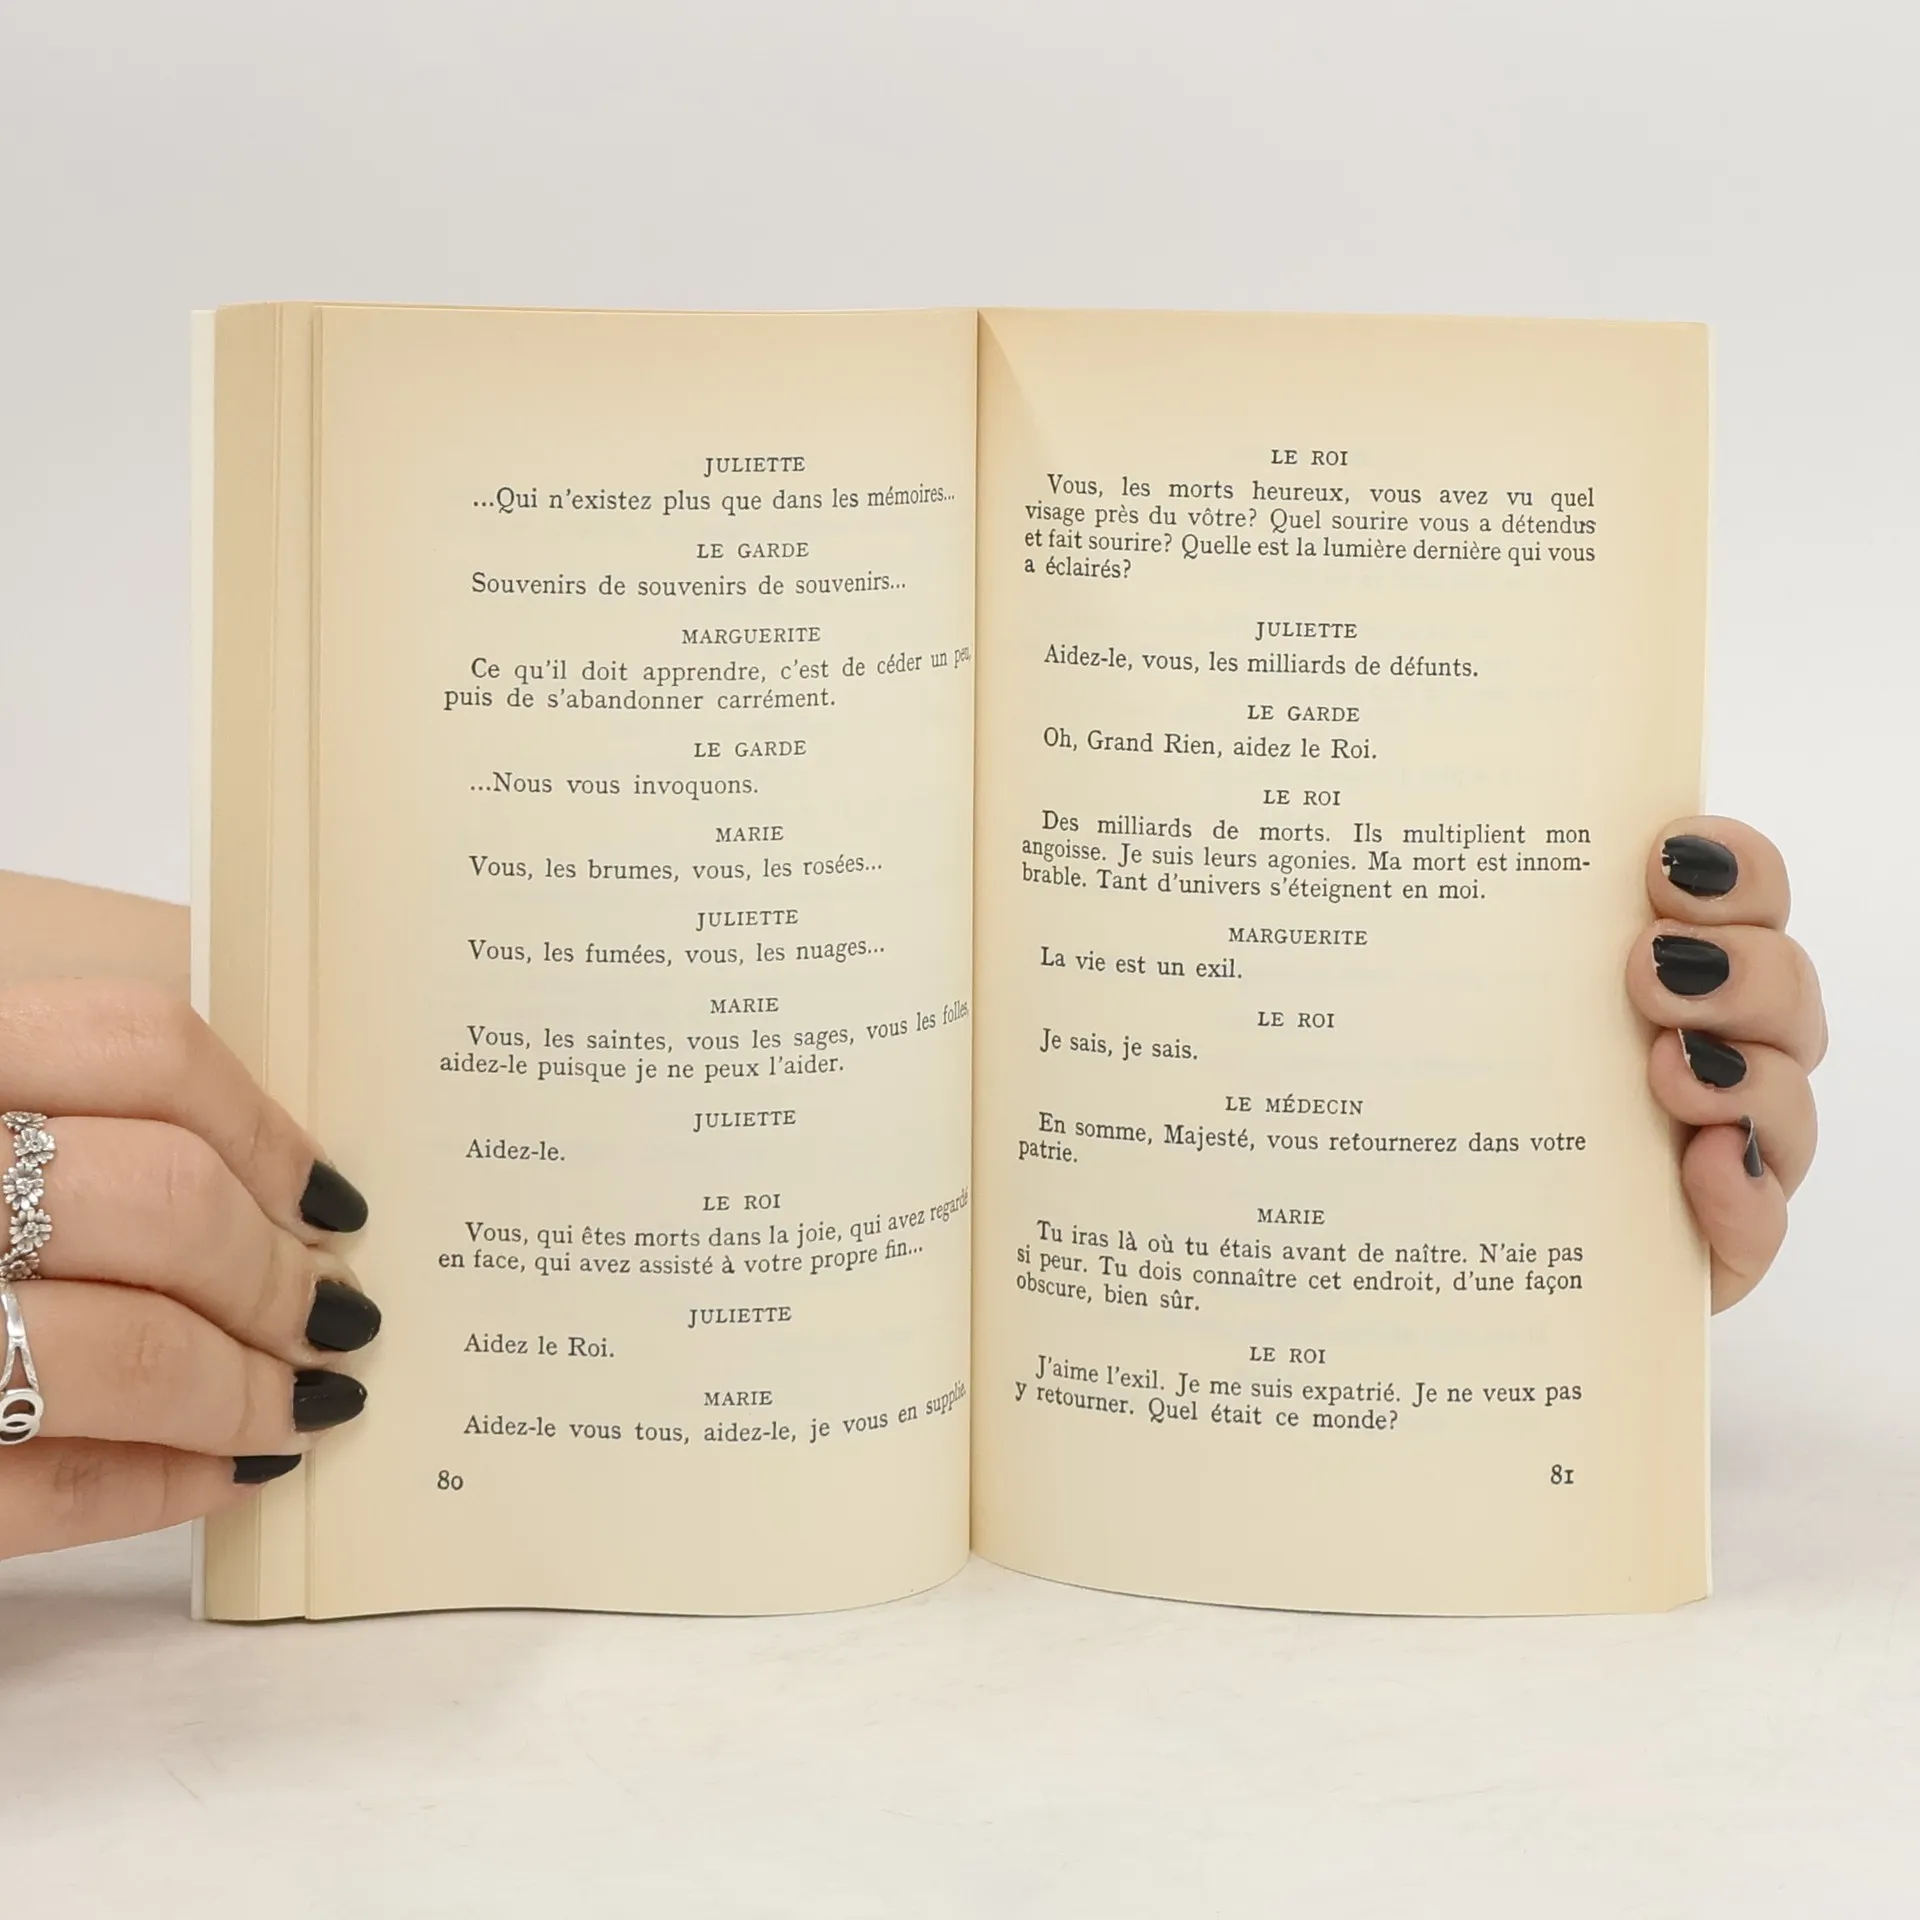 JULIETTE
...Qui n'existez plus que dans les mémoires...
LE GARDE
Souvenirs de souvenirs de souvenirs...
MARGUERITE
Ce qu'il doit apprendre, c'est de céder un peu,
puis de s'abandonner carrément.
LE GARDE
...Nous vous invoquons.
MARIE
Vous, les brumes, vous, les rosées...
JULIETTE
Vous, les fumées, vous, les nuages...
MARIE
Vous, les saintes, vous les sages, vous les folles,
aidez-le puisque je ne peux l'aider.
JULIETTE
Aidez-le.
LE ROI
Vous, qui êtes morts dans la joie, qui avez regardé
en face, qui avez assisté à votre propre fin...
JULIETTE
Aidez le Roi.
MARIE
Aidez-le vous tous, aidez-le, je vous en supplie.
80
LE ROI
Vous, les morts heureux, vous avez vu quel
visage près du vôtre? Quel sourire vous a détendus
et fait sourire? Quelle est la lumière dernière qui vous
a éclairés?
JULIETTE
Aidez-le, vous, les milliards de défunts.
LE GARDE
Oh, Grand Rien, aidez le Roi.
LE ROI
Des milliards de morts. Ils multiplient mon
angoisse. Je suis leurs agonies. Ma mort est innom-
brable. Tant d'univers s'éteignent en moi.
MARGUERITE
La vie est un exil.
LE ROI
Je sais, je sais.
LE MÉDECIN
En somme, Majesté, vous retournerez dans votre
patrie.
MARIE
Tu iras là où tu étais avant de naître. N'aie pas
si peur. Tu dois connaître cet endroit, d'une façon
obscure, bien sûr.
LE ROI
J'aime l'exil. Je me suis expatrié. Je ne veux pas
y retourner. Quel était ce monde?
81